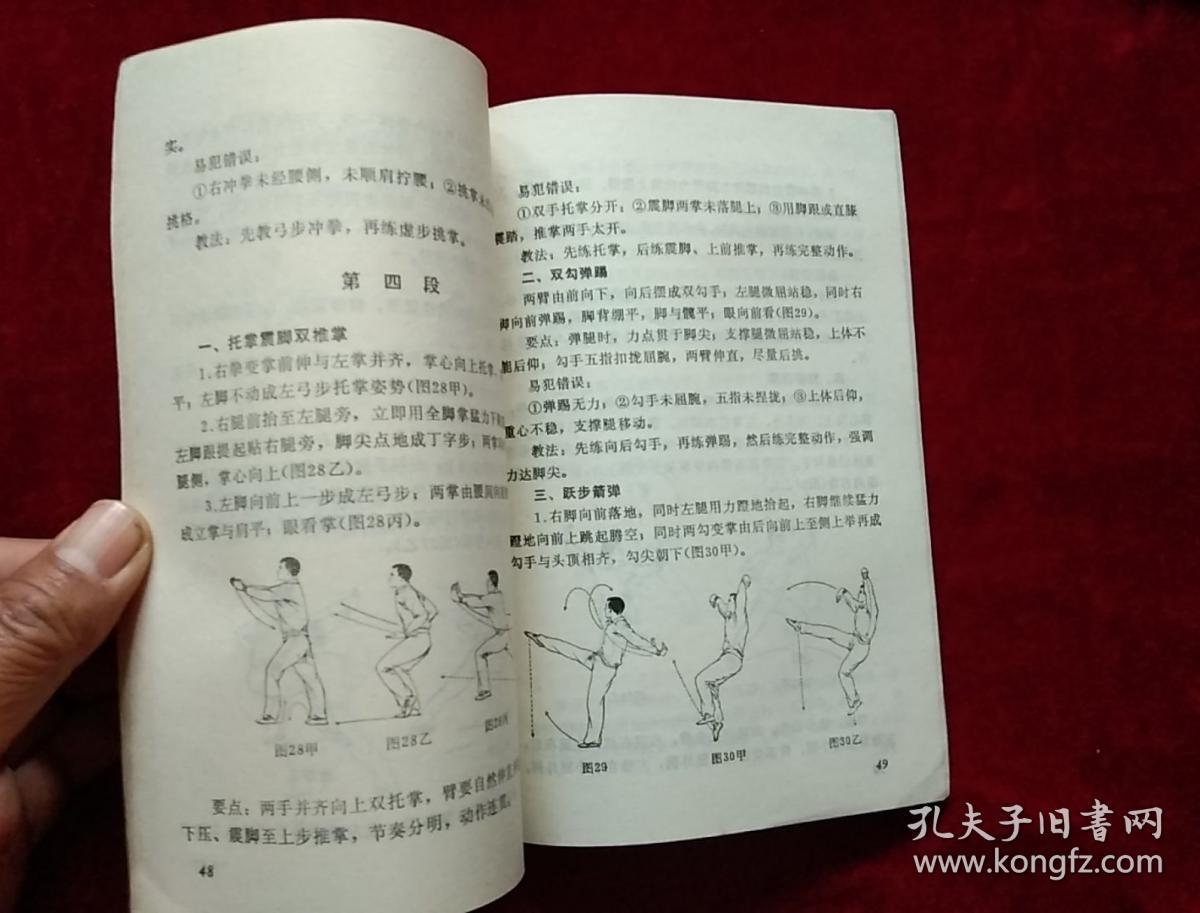 实。
易犯错误：
①右冲拳未经腰侧，未顺肩拧腰；②挑掌未
挑格。
教法：先教弓步冲拳，再练虚步挑掌。
第四段
一、托掌震脚双推掌
1.右拳变掌前伸与左掌并齐，掌心向上托掌
平；左脚不动成左弓步托掌姿势(图28甲)。
2.右腿前抬至左腿旁，立即用全脚掌猛力下
左脚跟提起贴右腿旁，脚尖点地成丁字步；两掌
腿侧，掌心向上(图28乙)。
3.左脚向前上一步成左弓步；两掌由腰间向
成立掌与肩平；眼看掌(图28丙)。
图28甲
图28乙
图28丙
要点：两手并齐向上双托掌，臂要自然伸直
下压、震脚至上步推掌，节奏分明，动作连贯。
48
易犯错误：
①双手托掌分开；②震脚两掌未落腿上；③用脚跟或直膝
震踏，推掌两手太开。
教法：先练托掌，后练震脚、上前推掌，再练完整动作。
二、双勾弹踢
两臂由前向下，向后摆成双勾手；左腿微屈站稳，同时右
脚向前弹踢，脚背绷平，脚与髋平；眼向前看(图29)。
要点：弹腿时，力点贯于脚尖；支撑腿微屈站稳，上体不
能后仰；勾手五指扣拢屈腕，两臂伸直，尽量后挑。
易犯错误：
①弹踢无力；②勾手未屈腕，五指未捏拢；③上体后仰，
重心不稳，支撑腿移动。
教法：先练向后勾手，再练弹踢，然后练完整动作，强调
力达脚尖。
三、跃步箭弹
1.右脚向前落地，同时左腿用力蹬地抬起，右脚继续猛力
蹬地向前上跳起腾空；同时两勾变掌由后向前上至侧上举再成
勾手与头顶相齐，勾尖朝下(图30甲)。
图29
图30甲
图30乙
49
孔夫子旧书网
www.kongfz.com